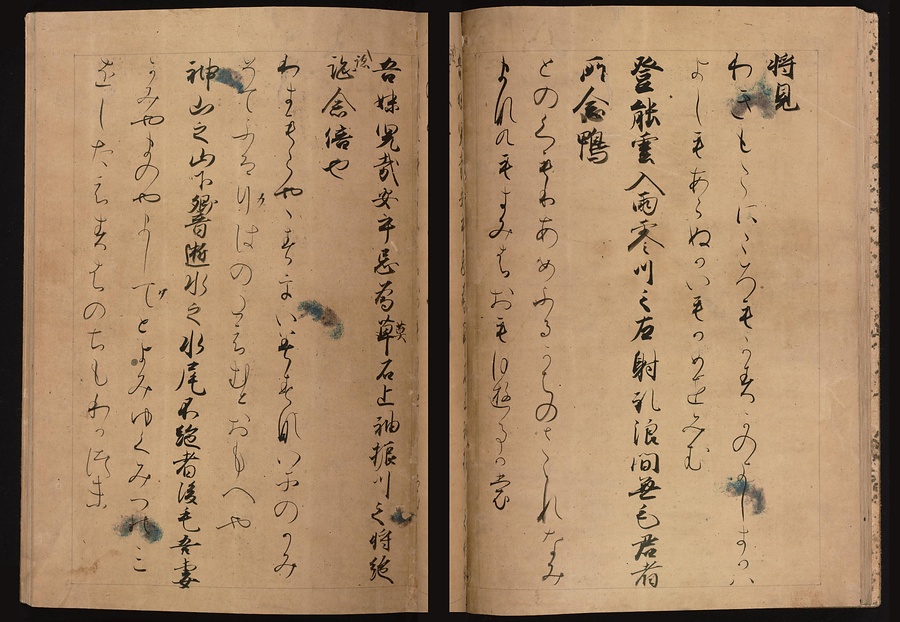 将見
わきもこにころもかすかのよしきかは
よしもあらぬかいもかめをみむ
登能雲入雨零川之左射礼浪間無毛君者
所念鴨
とのくもりあめふるかはのさゝれなみ
もきみはおもほゆるか裳
吾妹兒哉安乎忘為草石上袖振川之将絶
跡念倍也
わきもこやいそのかみ
そてふるかはのたえむとおもへや
神山之山下響逝水之水尾不絶者後毛吾妻
かみやまのやましてとよみゆくみつのみ
をしたえすはのちもわかつま